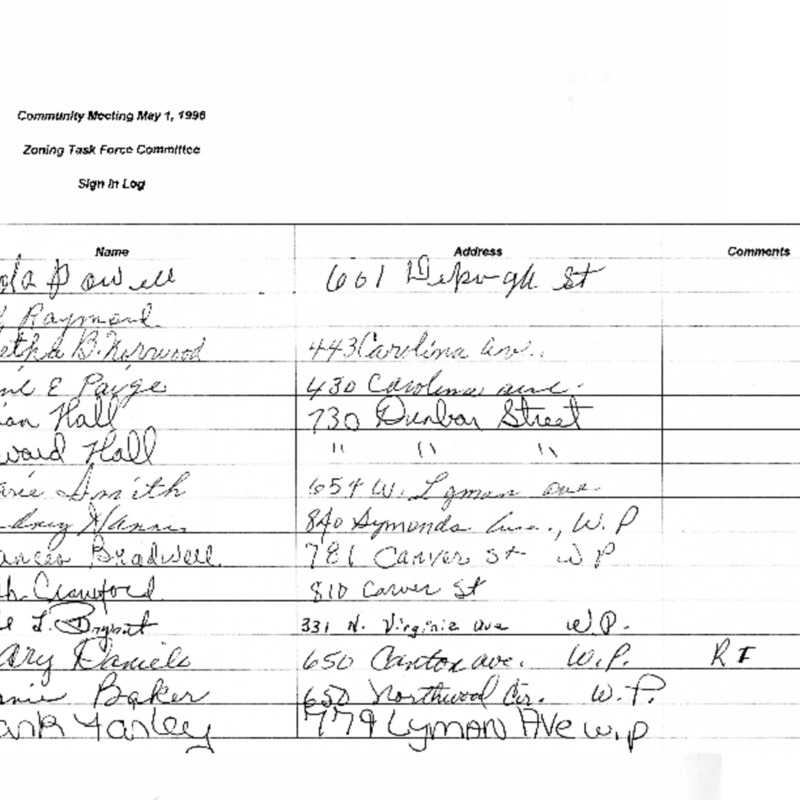 Community Meeting May 1, 1996
Zoning Task Force Committee
Sign in Log
Name Address Comments
Powell 601 St
Raymond
B. Norwood 443 Carolina Av.
E Paige 430 Carolina ave.
Hall 730 Dunbar Street
ward Hall " " "
arie Smith 654 W. Lyman ave.
840 Symonds Ave., W.P
ances Bradwell 781 Carver St W P
h Crawford 810 Carver St
L. Bryant 331 N. Virginia Ave W.P.
ary Daniels 650 Canton ave. W.P. R I
nie Baker 650 Northwood Cir. W.P.
ank Yarley 779 Lyman Ave W.P